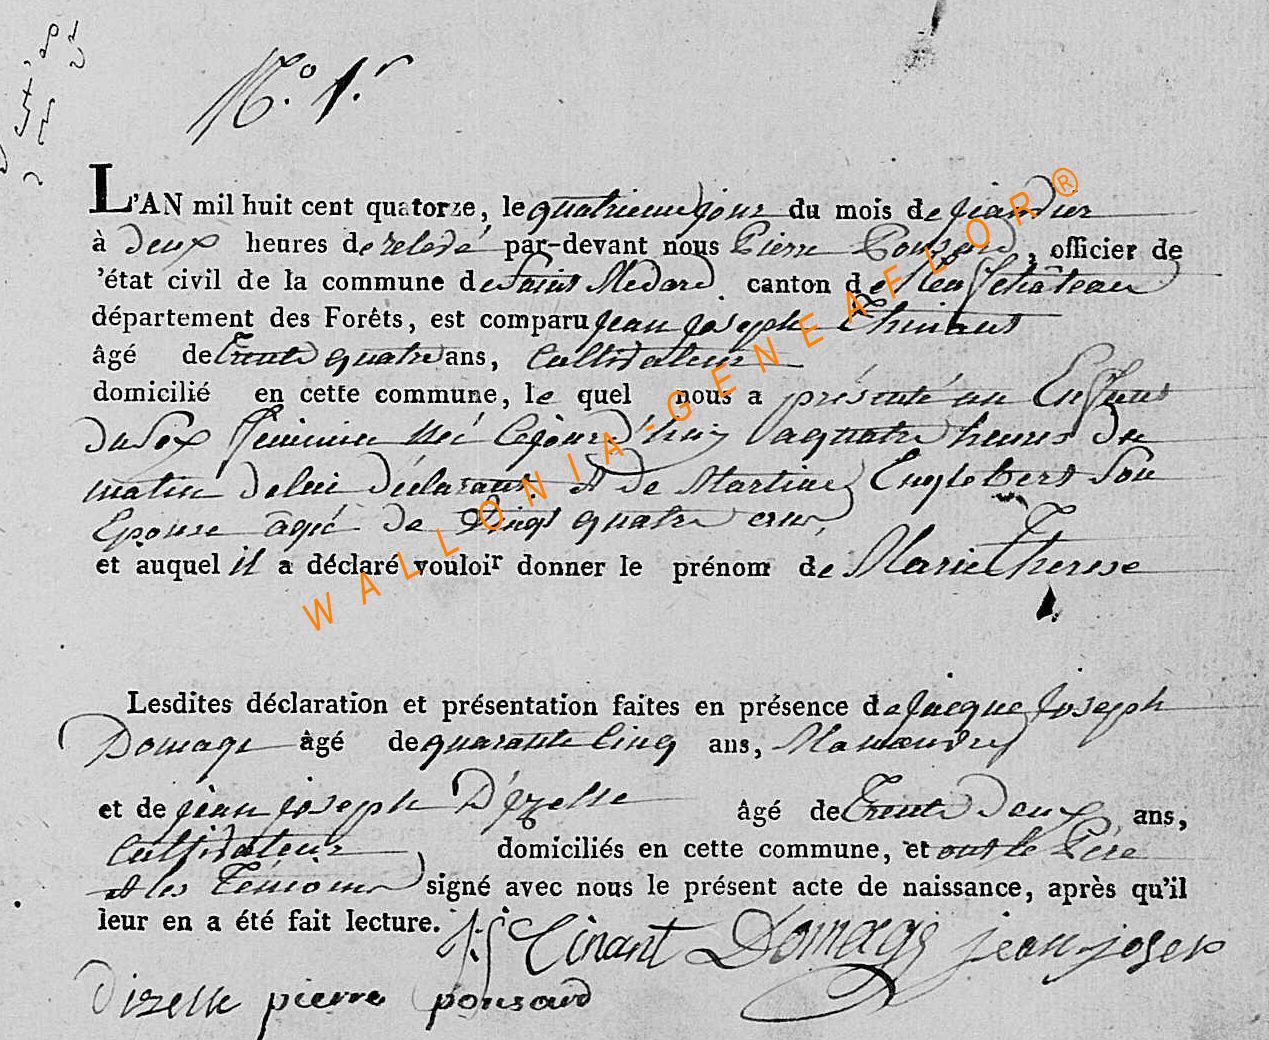 N.º 1.er
L'AN mil huit cent quatorze, le quatrieme jour du mois de janvier
à deux heures de relevé par-devant nous Pierre Ponsard, officier de
'état civil de la commune de Saint Medard canton de Neufchateau
département des Forêts, est comparu jean joseph Thinant
âgé de trente quatre ans, Cultivateur
domicilié en cette commune, le quel nous a présenté un Enfant
du sex feminin née Cejourd'huy a quatre heures du
matin de lui déclarant et de Martine Englebert Son
Epouse agée de vingt quatre ans,
et auquel il a déclaré vouloir donner le prénom de Marie Therese
Lesdites déclaration et présentation faites en présence de jacque joseph
Domage âgé de quarante Cinq ans, Manœuvre
et de jean joseph Dizelle âgé de Trente Deux ans,
Cultivateur domiciliés en cette commune, et ont le Pére
et les Témoins signé avec nous le présent acte de naissance, après qu'il
leur en a été fait lecture. j: j: Tinant Domage jean josep
Dizelle pierre ponsard
WALLONIA-GENEAFLOR®